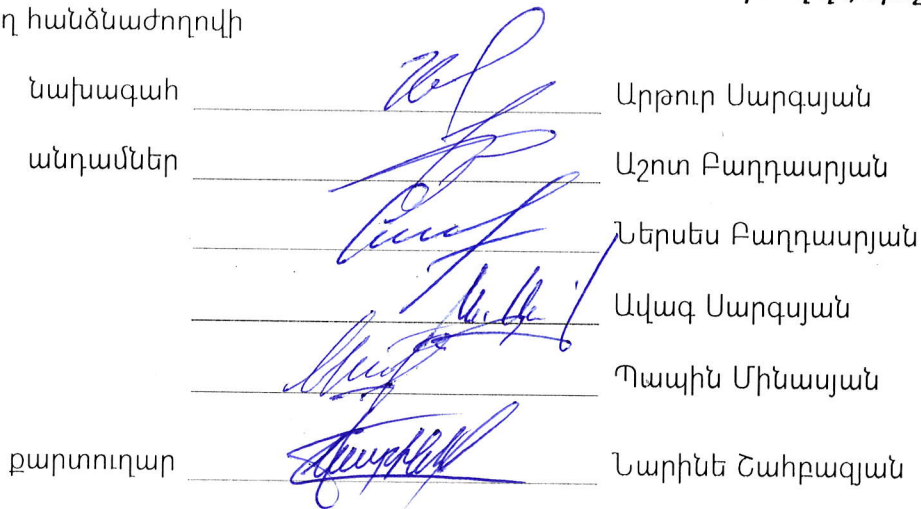 հանձնաժողովի
նախագահ Արթուր Սարգսյան
անդամներ Աշոտ Բաղդասրյան
Ներսես Բաղդասրյան
Ավագ Սարգսյան
Պապին Մինասյան
քարտուղար Նարինե Շահբազյան